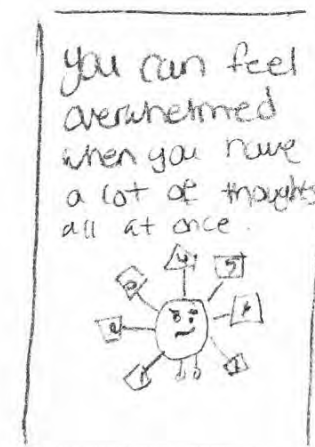 You can feel
overwhelmed
when you have
a lot of thoughts
all at once.
4
3 5
2
1